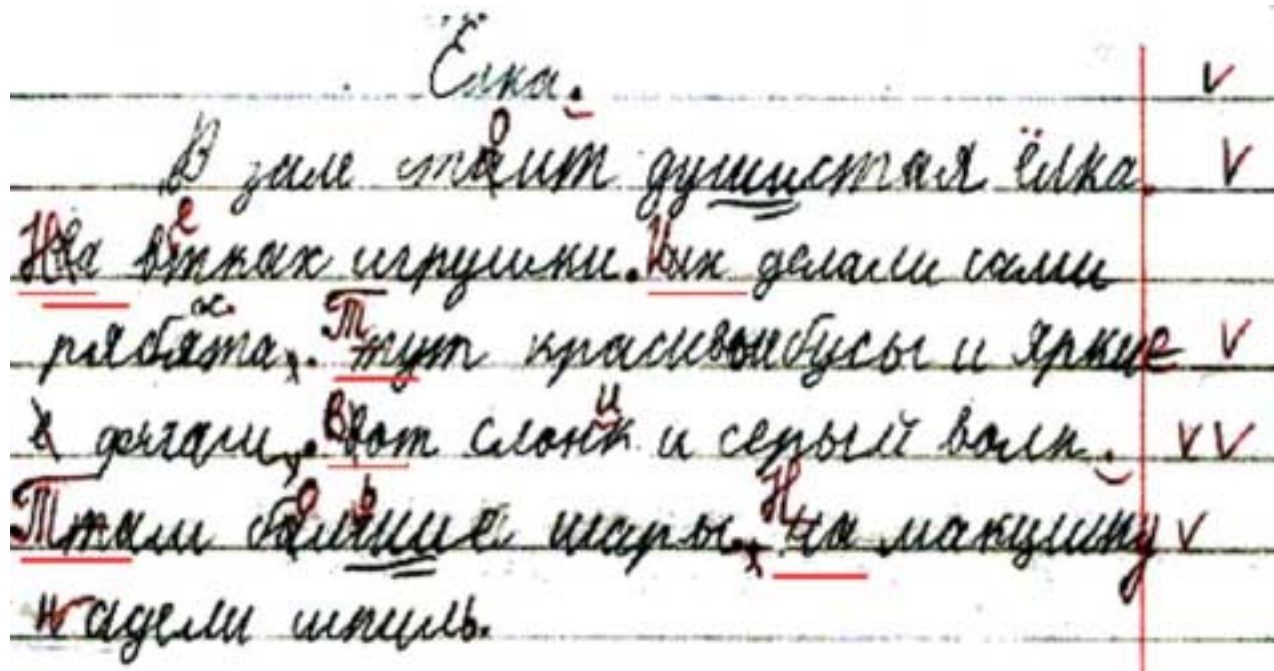 Ёлка.
В зале стаит душистая ёлка.
На втках игрушки. Их делали сами
рябята. Тут красивыи бусы и яркие
флгаги. Вот слонк и серый волк.
Там балшие шары. На макушку
надели шпиль.